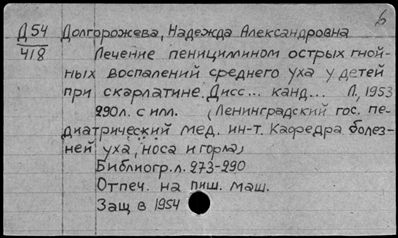 б
Д54 Долгорожева, Надежда Александровна
418 Лечение пенициллином острых гной-
ных воспалений среднего уха у детей
при скарлатине. Дисс... канд... Л, 1953
290л. с илл. (Ленинградский гос. пе-
диатрический мед. ин-т. Кафедра болез-
ней уха, носа и горла)
Библиогр. л. 273-290
Отпеч. на пиш. маш.
Защ в 1954